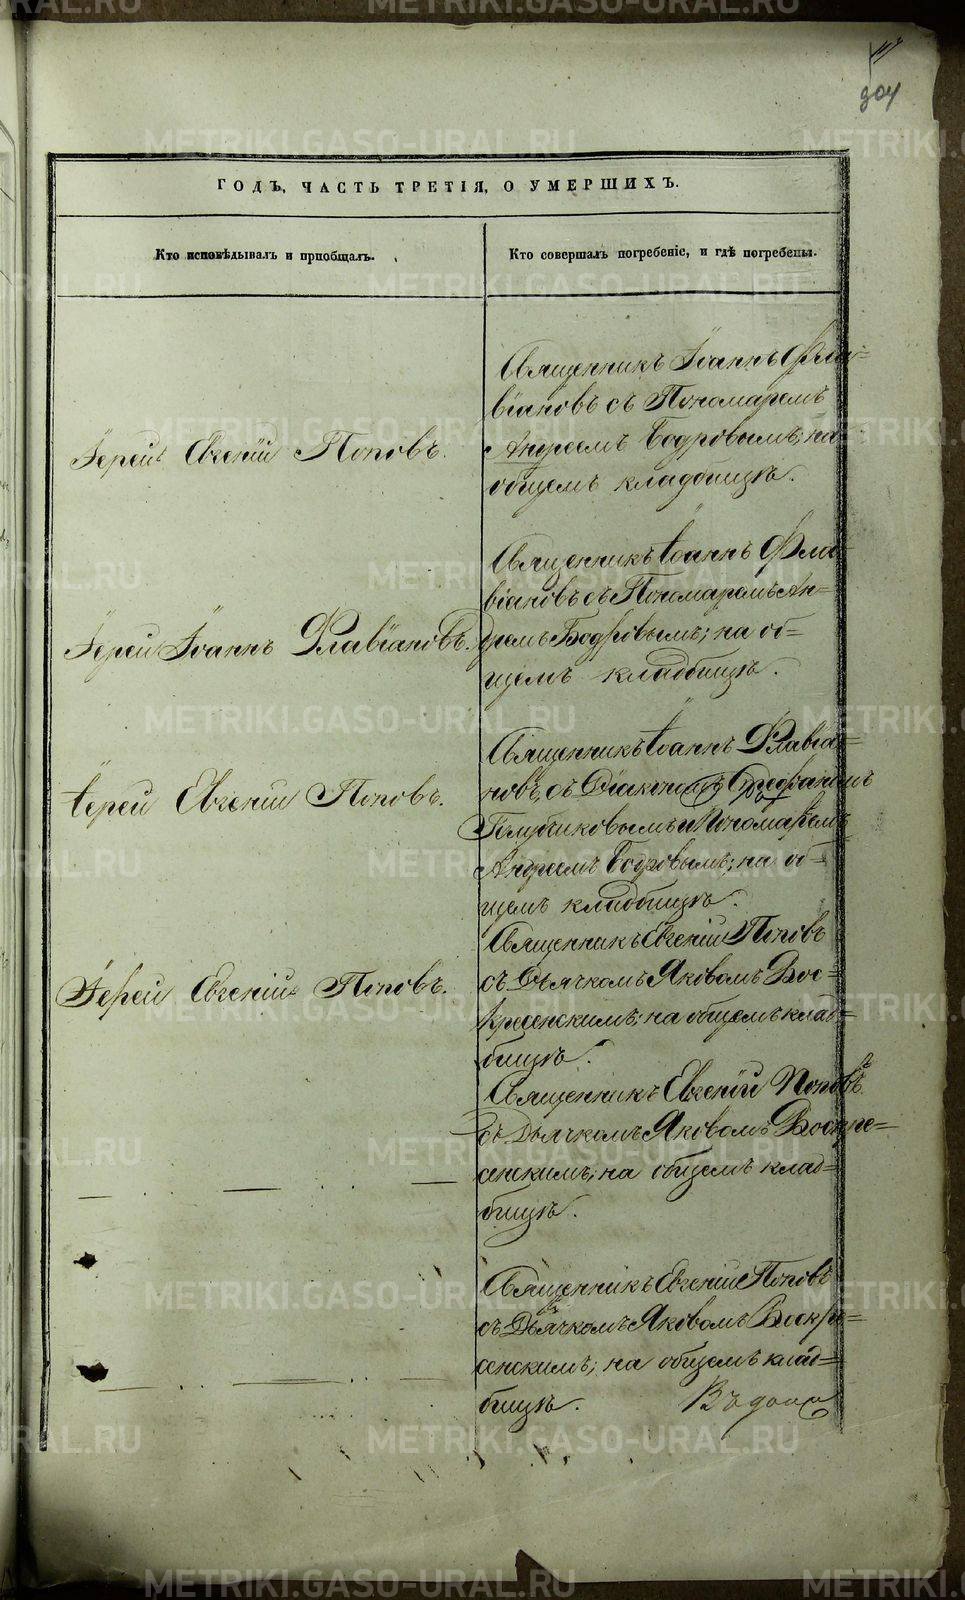 904
ГОДЪ, ЧАСТЬ ТРЕТІЯ, О УМЕРШИХЪ.
Кто исповѣдывалъ и пріобщалъ.
Кто совершалъ погребеніе, и гдѣ погребены.
Іерей Евгеній Поповъ.
Священникъ Іоаннъ Фла=
віановъ съ Пономаремъ
Андреемъ Бодровымъ; на
общемъ кладбищѣ.
Іерей Іоаннъ Флавіановъ.
Священникъ Іоаннъ Фла=
віановъ съ Пономаремъ Ан=
дреемъ Бодровымъ; на об=
щемъ кладбищѣ.
Іерей Евгеній Поповъ.
Священникъ Іоаннъ Флавіа=
новъ, съ Діакономъ Стефаномъ
Голубчиковымъ и Пономаремъ
Андреемъ Бодровымъ; на об=
щемъ кладбищѣ.
Іерей Евгеній Поповъ.
Священникъ Евгеній Поповъ
съ Дьячкомъ Яковомъ Вос=
кресенскимъ; на общемъ клад=
бищѣ.
Священникъ Евгеній Поповъ
съ Дьячкомъ Яковомъ Воскре=
сенскимъ; на общемъ клад=
бищѣ.
Священникъ Евгеній Поповъ
съ Дьячкомъ Яковомъ Воскре=
сенскимъ; на общемъ клад=
бищѣ.
METRIKI.GASO-URAL.RU